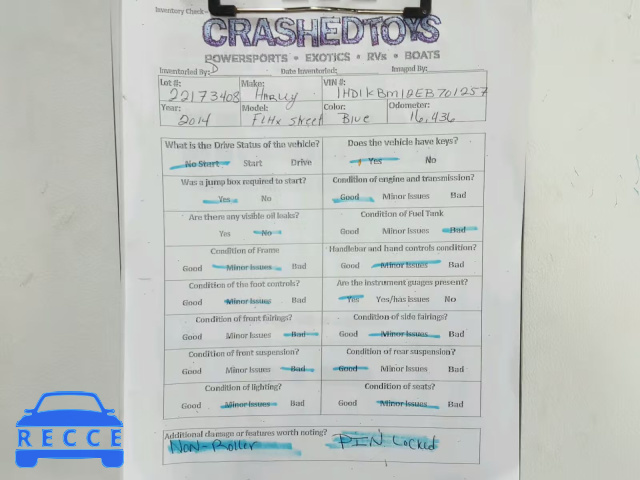 Inventory Check -
CRASHEDTOYS
POWERSPORTS • EXOTICS • RVs • BOATS
Inventoried By: D Date Inventoried: Imaged By:
Lot #: Make: VIN #:
22173408 Harley 1HD1KBM1
Year: Model: Color: Odometer:
2014 FlHx street Blue 16,436
What is the Drive Status of the vehicle? Does the vehicle have keys?
No Start Start Drive Yes No
Was a jump box required to start? Condition of engine and transmission?
Yes No Good Minor Issues Bad
Are there any visible oil leaks? Condition of Fuel Tank
Yes No Good Minor Issues Bad
Condition of Frame Handlebar and hand controls condition?
Good Minor Issues Bad Good Minor Issues Bad
Condition of the foot controls? Are the instrument guages present?
Good Minor Issues Bad Yes Yes/has Issues No
Condition of front fairings? Condition of side fairings?
Good Minor Issues Bad Good Minor Issues Bad
Condition of front suspension? Condition of rear suspension?
Good Minor Issues Bad Good Minor Issues Bad
Condition of lighting? Condition of seats?
Good Minor Issues Bad Good Minor Issues Bad
Additional damage or features worth noting?
Non-Roller PIN Locked
RECCE